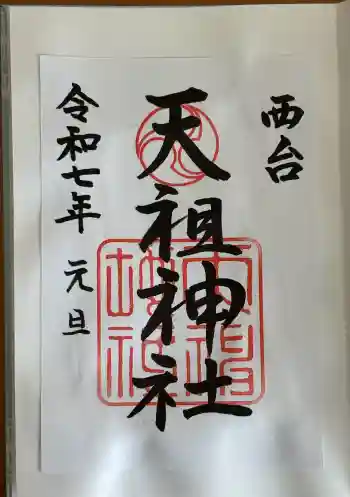 西台
天祖神社
令和七年 元旦
天祖神社